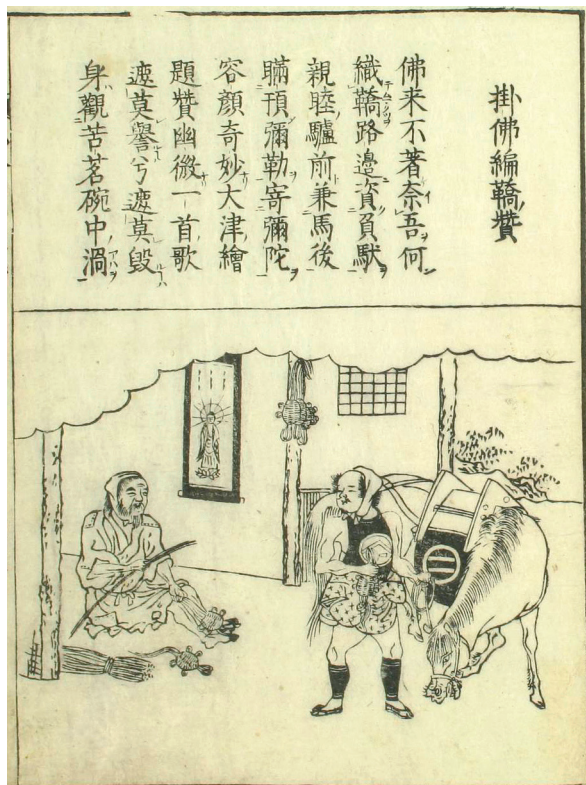 掛佛編鞽贊
佛来不著奈吾何
織鞽路邊資負馱
親睦驢前兼馬後
瞞頇彌勒寄彌陀
容顔奇妙大津繪
題贊幽微一首歌
遮莫譽兮遮莫毀
身觀苦茗碗中渦